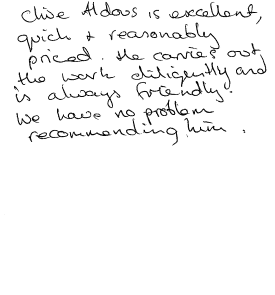 Clive Aldous is excellent,
quick & reasonably
priced. He carries out
the work diligently and
is always friendly.
We have no problem
recommending him.